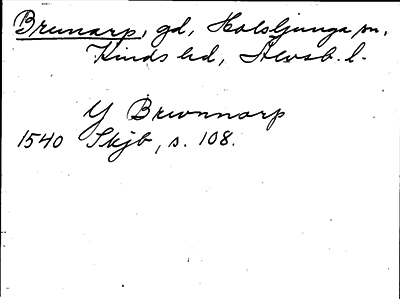 Brunarp, gd, Holsljunga sn,
Kinds hd, Älvsb. l.
Y Brwnnarp
1540 Skjb, s. 108.